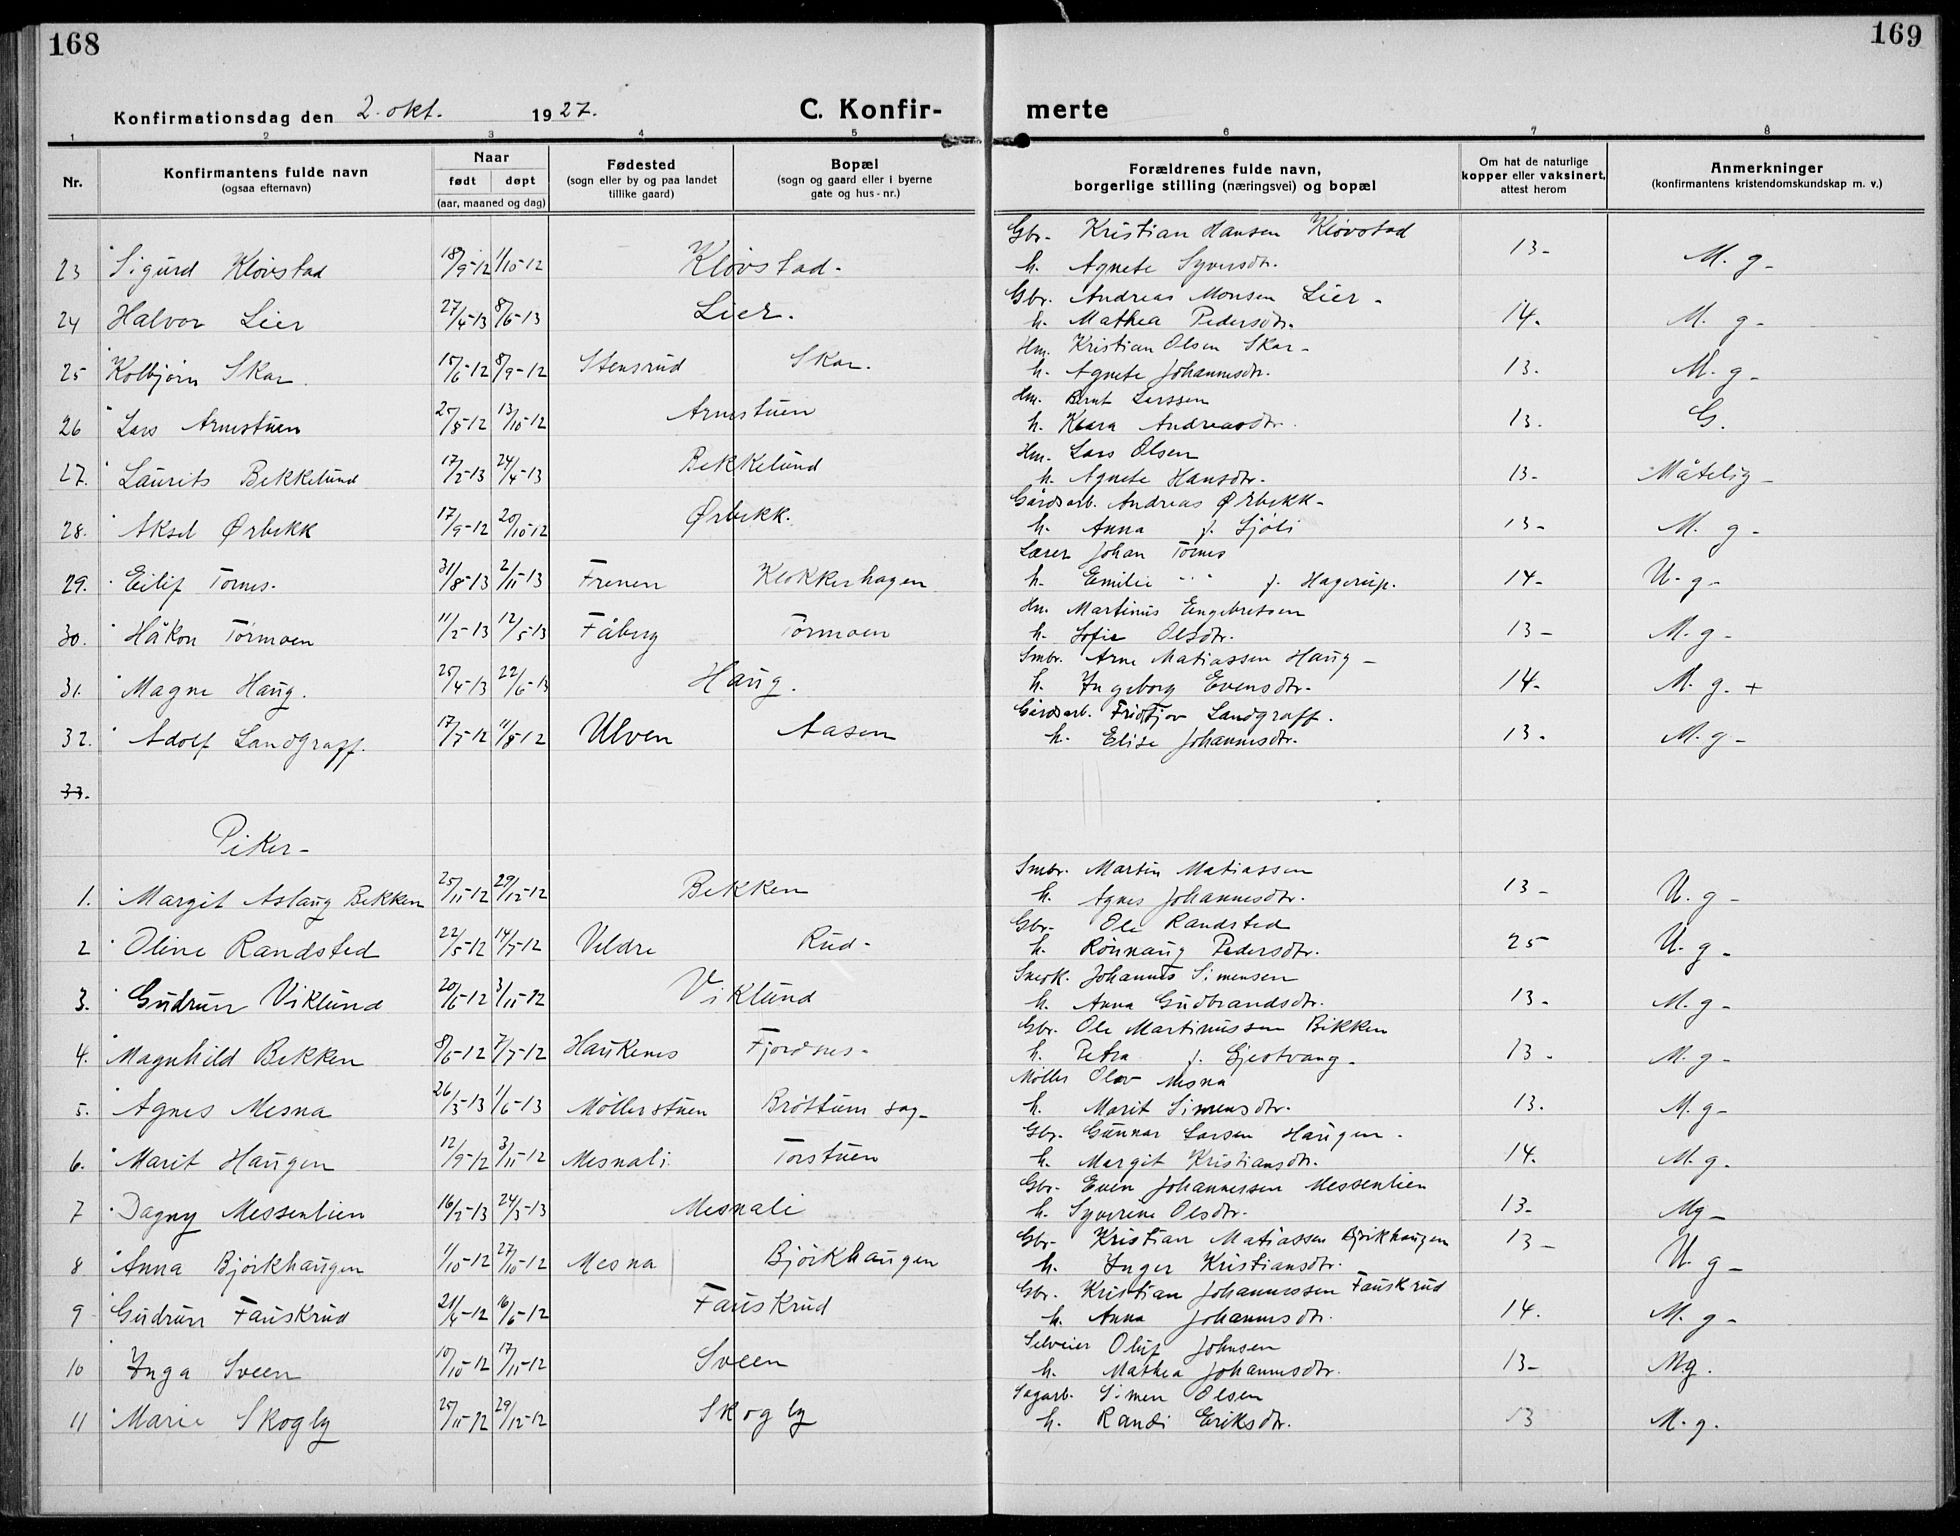 168
169
Konfirmationsdag den 2. okt. 1927.
C. Konfir-
merte
1 2 3 4 5 6 7 8
Nr.
Konfirmantens fulde navn
(ogsaa efternavn)
Naar
født døpt
(aar, maaned og dag)
Fødested
(sogn eller by og paa landet
tillike gaard)
Bopæl
(sogn og gaard eller i byerne
gate og hus-nr.)
Forældrenes fulde navn,
borgerlige stilling (næringsvei) og bopæl
Om hat de naturlige
kopper eller vaksinert,
attest herom
Anmerkninger
(konfirmantens kristendomskundskap m. v.)
Gbr. Kristian Hansen Kløvstad
23 Sigurd Kløvstad 18/9-12 1/10-12 Kløvstad. h. Agnete Syversdtr. 13- M. g-
Gbr. Andreas Monsen Lier-
24 Halvor Lier 27/4-13 8/6-13 Lier. h. Mathea Pedersdtr. 14. M. g-
Hm. Kristian Olsen Skar-
25 Kolbjørn Skar. 15/6-12 8/9-12 Stensrud Skar. h. Agnete Johannesdtr. 13. M. g-
Hm. Bernt Larssen
26 Lars Arnestuen 25/8-12 13/10-12 Arnestuen h. Klara Andreasdtr. 13. G.
Hm. Lars Olsen
27. Laurits Bekkelund 17/2-13 24/4-13 Bekkelund h. Agnete Hansdtr. 13- Måtelig-
Gårdsarb. Andreas Ørbekk-
28. Aksel Ørbekk 17/9-12 20/10-12 Ørbekk. h. Anna f. Sjøli 13- M. g-
Lærer Johan Tornes
29. Eilif Tornes. 31/8-13 2/11-13 Frenen Klokkerhagen h. Emilie " f. Hagerup. 14- U. g-
Hm. Martinus Engebretsen
30. Håkon Tormoen 11/2-13 12/5-13 Fåberg Tormoen h. Sofie Olsdtr. 13- M. g-
Smbr. Arne Matiassen Haug-
31. Magne Haug. 25/4-13 22/6-13 Haug. h. Ingeborg Evensdtr. 14- M. g. +
Gårdsarb. Fridtjov Landgraff.
32. Adolf Landgraff. 17/7-12 11/8-12 Ulven Aasen h. Elise Johannesdtr. 13. M. g-
33.
Piker-
Smbr. Martin Matiassen
1. Margit Aslaug Bekken 25/11-12 29/12-12 Bekken h. Agnes Johannesdtr. 13- U. g-
Gbr. Ole Randsted
2 Oline Randsted 22/5-12 14/7-12 Veldre Rud- h. Rønnaug Pedersdtr. 25 U. g-
Snerk. Johannes Simensen
3. Gudrun Viklund 20/6-12 3/11-12 Viklund h. Anna Gudbrandsdtr. 13- M. g-
Gbr. Ole Martinussen Bekken
4. Magnhild Bekken 8/6-12 7/7-12 Haukenes Fjordnes- h. Petra f. Gjestvang- 13- M. g-
Møller Olav Mesna
5. Agnes Mesna 26/3-13 1/6-13 Møllerstuen Brøttum sag- h. Marit Simensdtr. 13. M. g-
Gbr. Gunnar Larsen Haugen.
6. Marit Haugen 12/9-12 3/11-12 Mesnali Torstuen h. Margit Kristiansdtr. 14. M. g.
Gbr. Even Johannessen Messenlien
7 Dagny Messenlien 16/2-13 24/3-13 Mesnali h. Syverine Olsdtr. 13- Mg-
Gbr. Kristian Matiassen Bjørkhaugen
8 Anna Bjørkhaugen 1/10-12 27/10-12 Mesna Bjørkhaugen h. Inger Kristiansdtr. 13- U. g-
Gbr. Kristian Johannessen Fauskrud
9 Gudrun Fauskrud 21/4-12 16/6-12 Fauskrud h. Anna Johannesdtr. 14. M. g-
Selveier Oluf Johnsen
10 Inga Sveen 10/10-12 17/11-12 Sveen h. Mathea Johannesdtr. 13- Mg.
Sagarb. Simen Olsen
11 Marie Skogly 25/11-12 29/12-12 Skogly h. Randi Eriksdtr. 13 M. g.